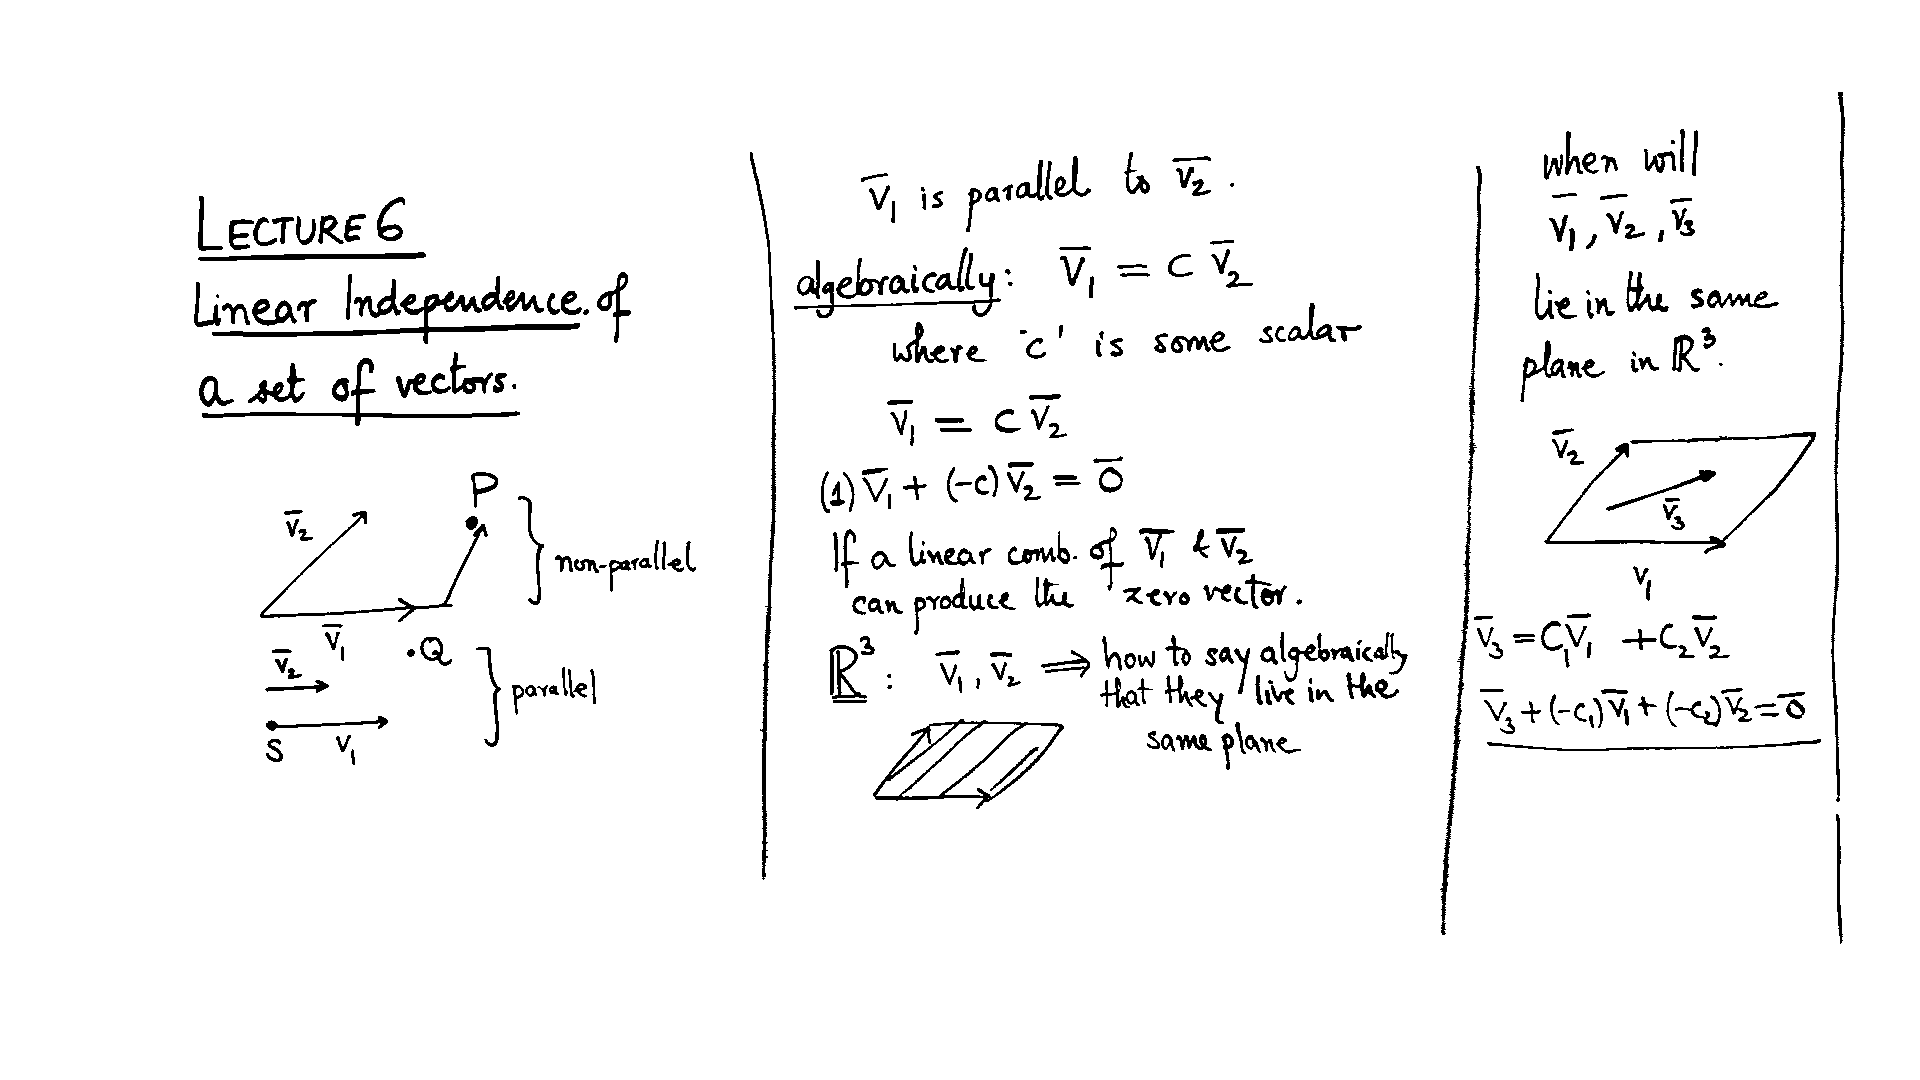 LECTURE 6
Linear Independence of
a set of vectors.
P
v̅₂
non-parallel
v̅₁
.Q
v̅₂
parallel
S
v₁
v̅₁ is parallel to v̅₂.
algebraically: v̅₁ = c v̅₂
where 'c' is some scalar
v̅₁ = c v̅₂
(1) v̅₁ + (-c) v̅₂ = 0̅
If a linear comb. of v̅₁ & v̅₂
can produce the zero vector.
ℝ³: v̅₁, v̅₂ ⟹ how to say algebraically
that they live in the
same plane
when will
v̅₁, v̅₂, v̅₃
lie in the same
plane in ℝ³.
v̅₂
v̅₃
v₁
v̅₃ = c₁v̅₁ + c₂v̅₂
v̅₃ + (-c₁)v̅₁ + (-c₂)v̅₂ = 0̅